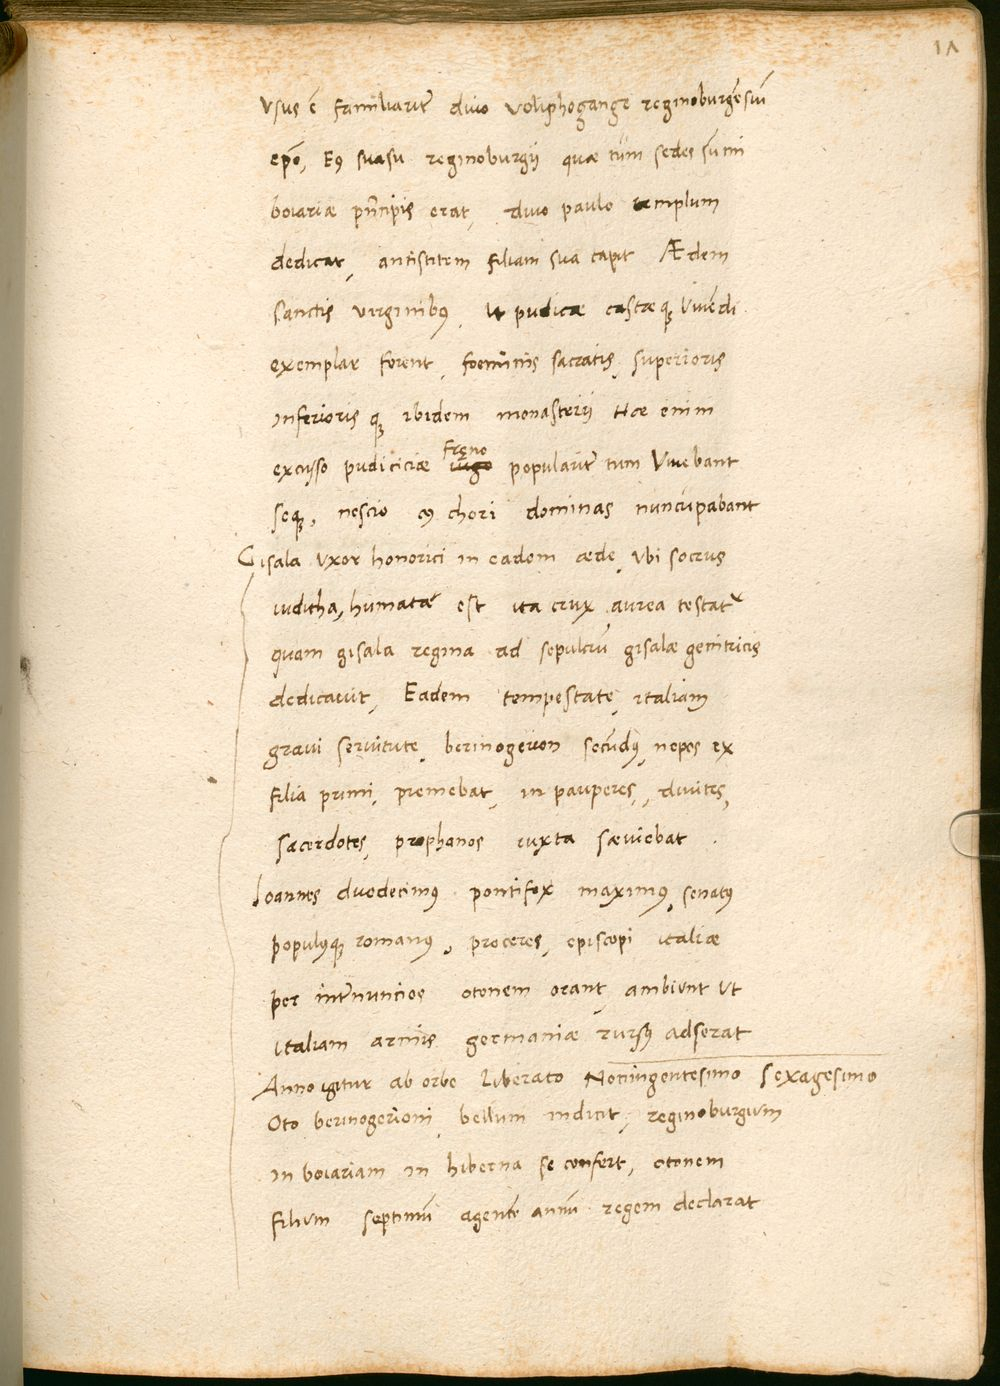 18
Vsus ē familiarit̄ divo voliphogango reginoburgēsiū
epō, Eꝯ suasu reginoburgij quæ tūm sedes sūmi
boiariæ pn̄cipis erat, divo paulo templum
dedicat, antistitem filiam sua capit Ædem
sanctis virginibꝯ, ut pudicæ castæqꝫ vivēdi
exemplar forent, foeminis sacratis, superioris
inferioris qꝫ ibidem monasterij Hæ enim
excusso pudiciciæ iugo fręno popularit̄ tum vivebant
seqꝫ, nescio cꝯ chori dominas nuncupabant
Gisala vxor honorici in eadem æde, vbi socrus
iuditha, humata est ita crux aurea testat̄
quam gisala regina ad sepulcrū gisalæ genitricis
dedicavit, Eadem tempestate, italiam
gravi servitute, berinogerion secūdꝯ, nepos ex
filia primi, premebat, in pauperes, divites,
sacerdotes, prophanos iuxta sæviebat .
Ioannes duodecimꝯ pontifex maximꝯ, senatꝯ
populꝯqꝫ romanꝯ, proceres, episcopi italiæ
per int̄nuncios otonem orant, ambiunt ut
italiam armis germaniæ rursꝯ adserat
Anno igitur ab orbe liberato Noningentesimo sexagesimo
Oto berinogerioni bellum indicit, reginoburgium
in boiariam in hiberna se confert, otonem
filium septimū agentē annū regem declarat